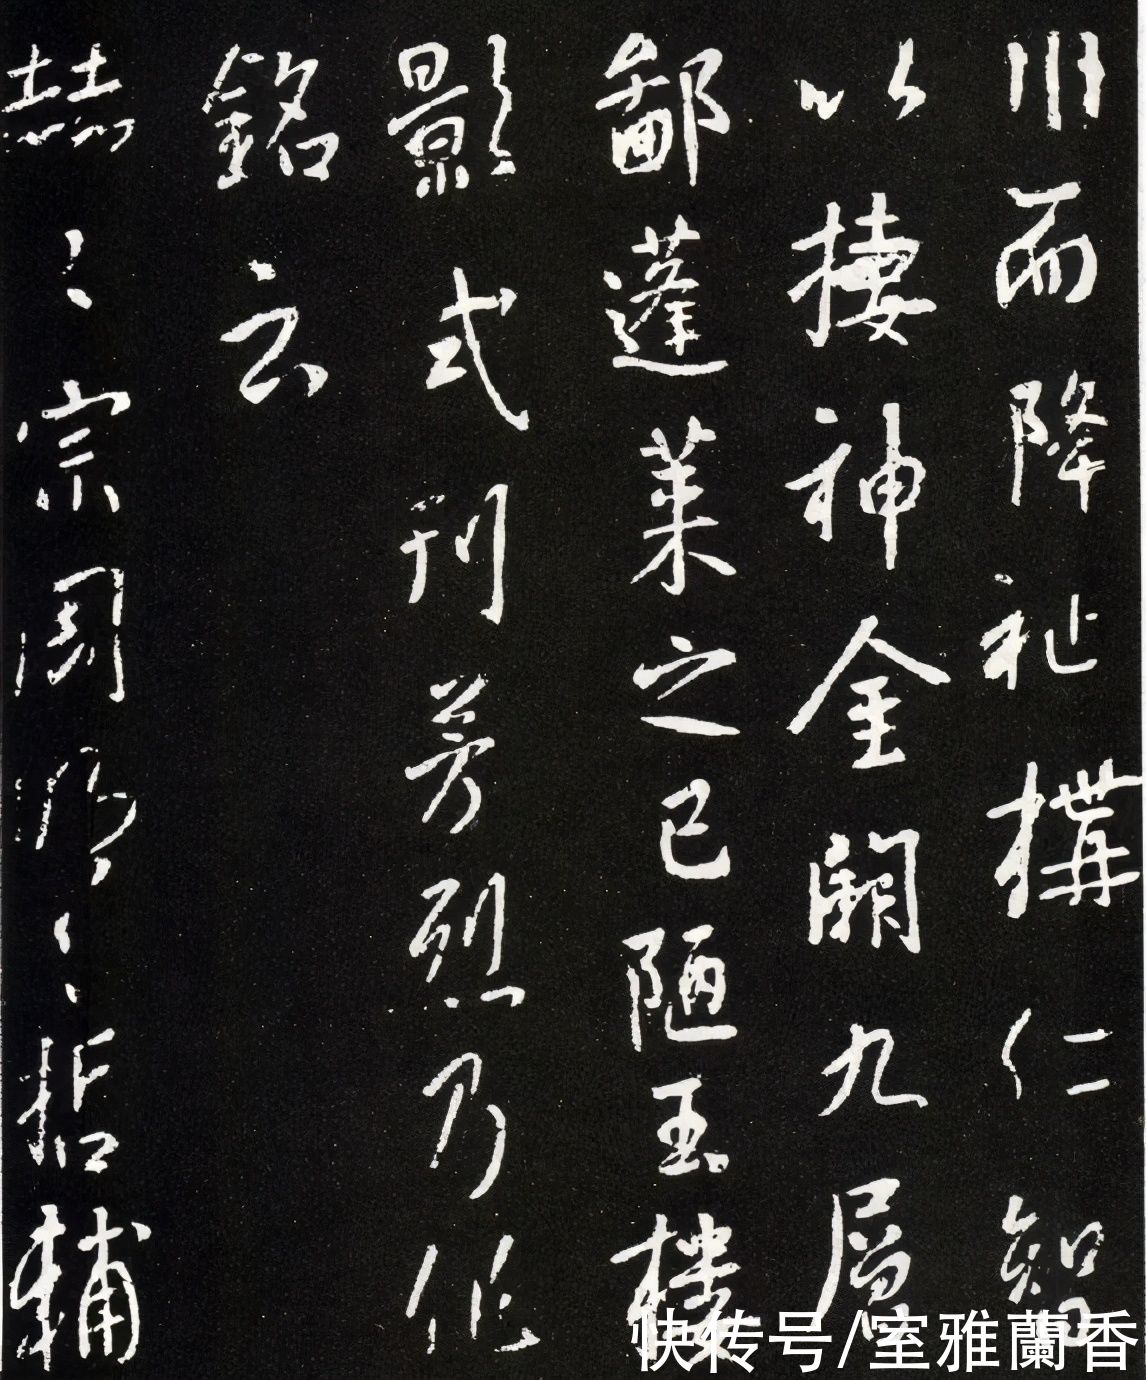 川而降祉構仁智
以棲神金闕九層
鄙蓬萊之已陋玉樓
影式刊芳烈乃作
銘云
赫〻宗周明〻哲輔
快传号/室雅蘭香